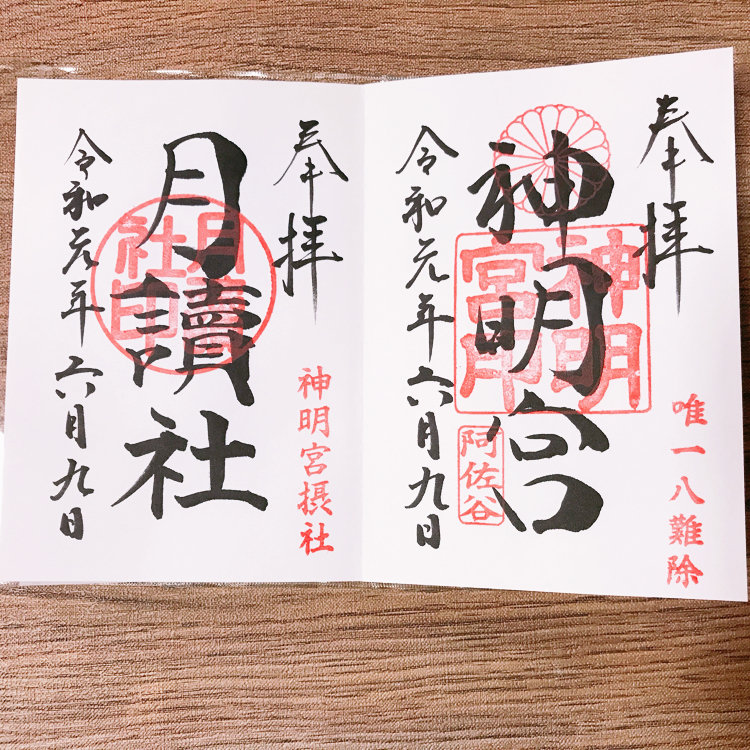 奉拝
唯一八難除
神明宮
神明宮印
阿佐谷
令和元年六月九日
奉拝
神明宮摂社
月讀社
月讀社印
令和元年六月九日